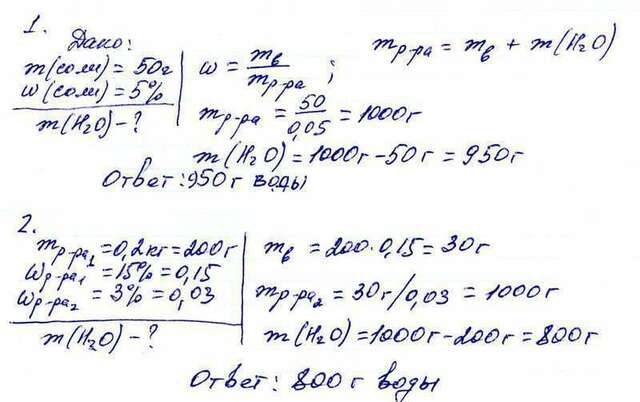 1.
Дано:
m(соли) = 50г
w(соли) = 5%
m(H₂O) - ?
w = mв / mр-ра ;
mр-ра = mв + m(H₂O)
mр-ра = 50 / 0,05 = 1000г
m(H₂O) = 1000г - 50г = 950г
Ответ: 950г воды
2.
mр-ра₁ = 0,2кг = 200г
wр-ра₁ = 15% = 0,15
wр-ра₂ = 3% = 0,03
m(H₂O) - ?
mв = 200·0,15 = 30г
mр-ра₂ = 30г/0,03 = 1000г
m(H₂O) = 1000г - 200г = 800г
Ответ: 800г воды